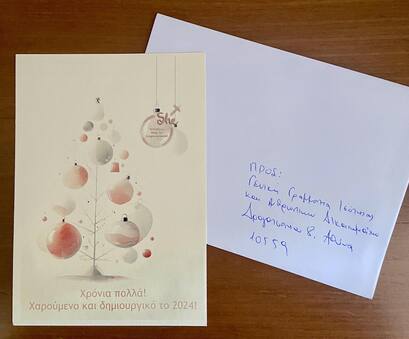 She
Χρόνια πολλά!
Χαρούμενο και δημιουργικό το 2024!
ΠΡΟΣ:
Γενική Γραμματεία Ισότητας
και Ανθρωπίνων Δικαιωμάτων
Δραγατσανίου 8, Αθήνα
10559